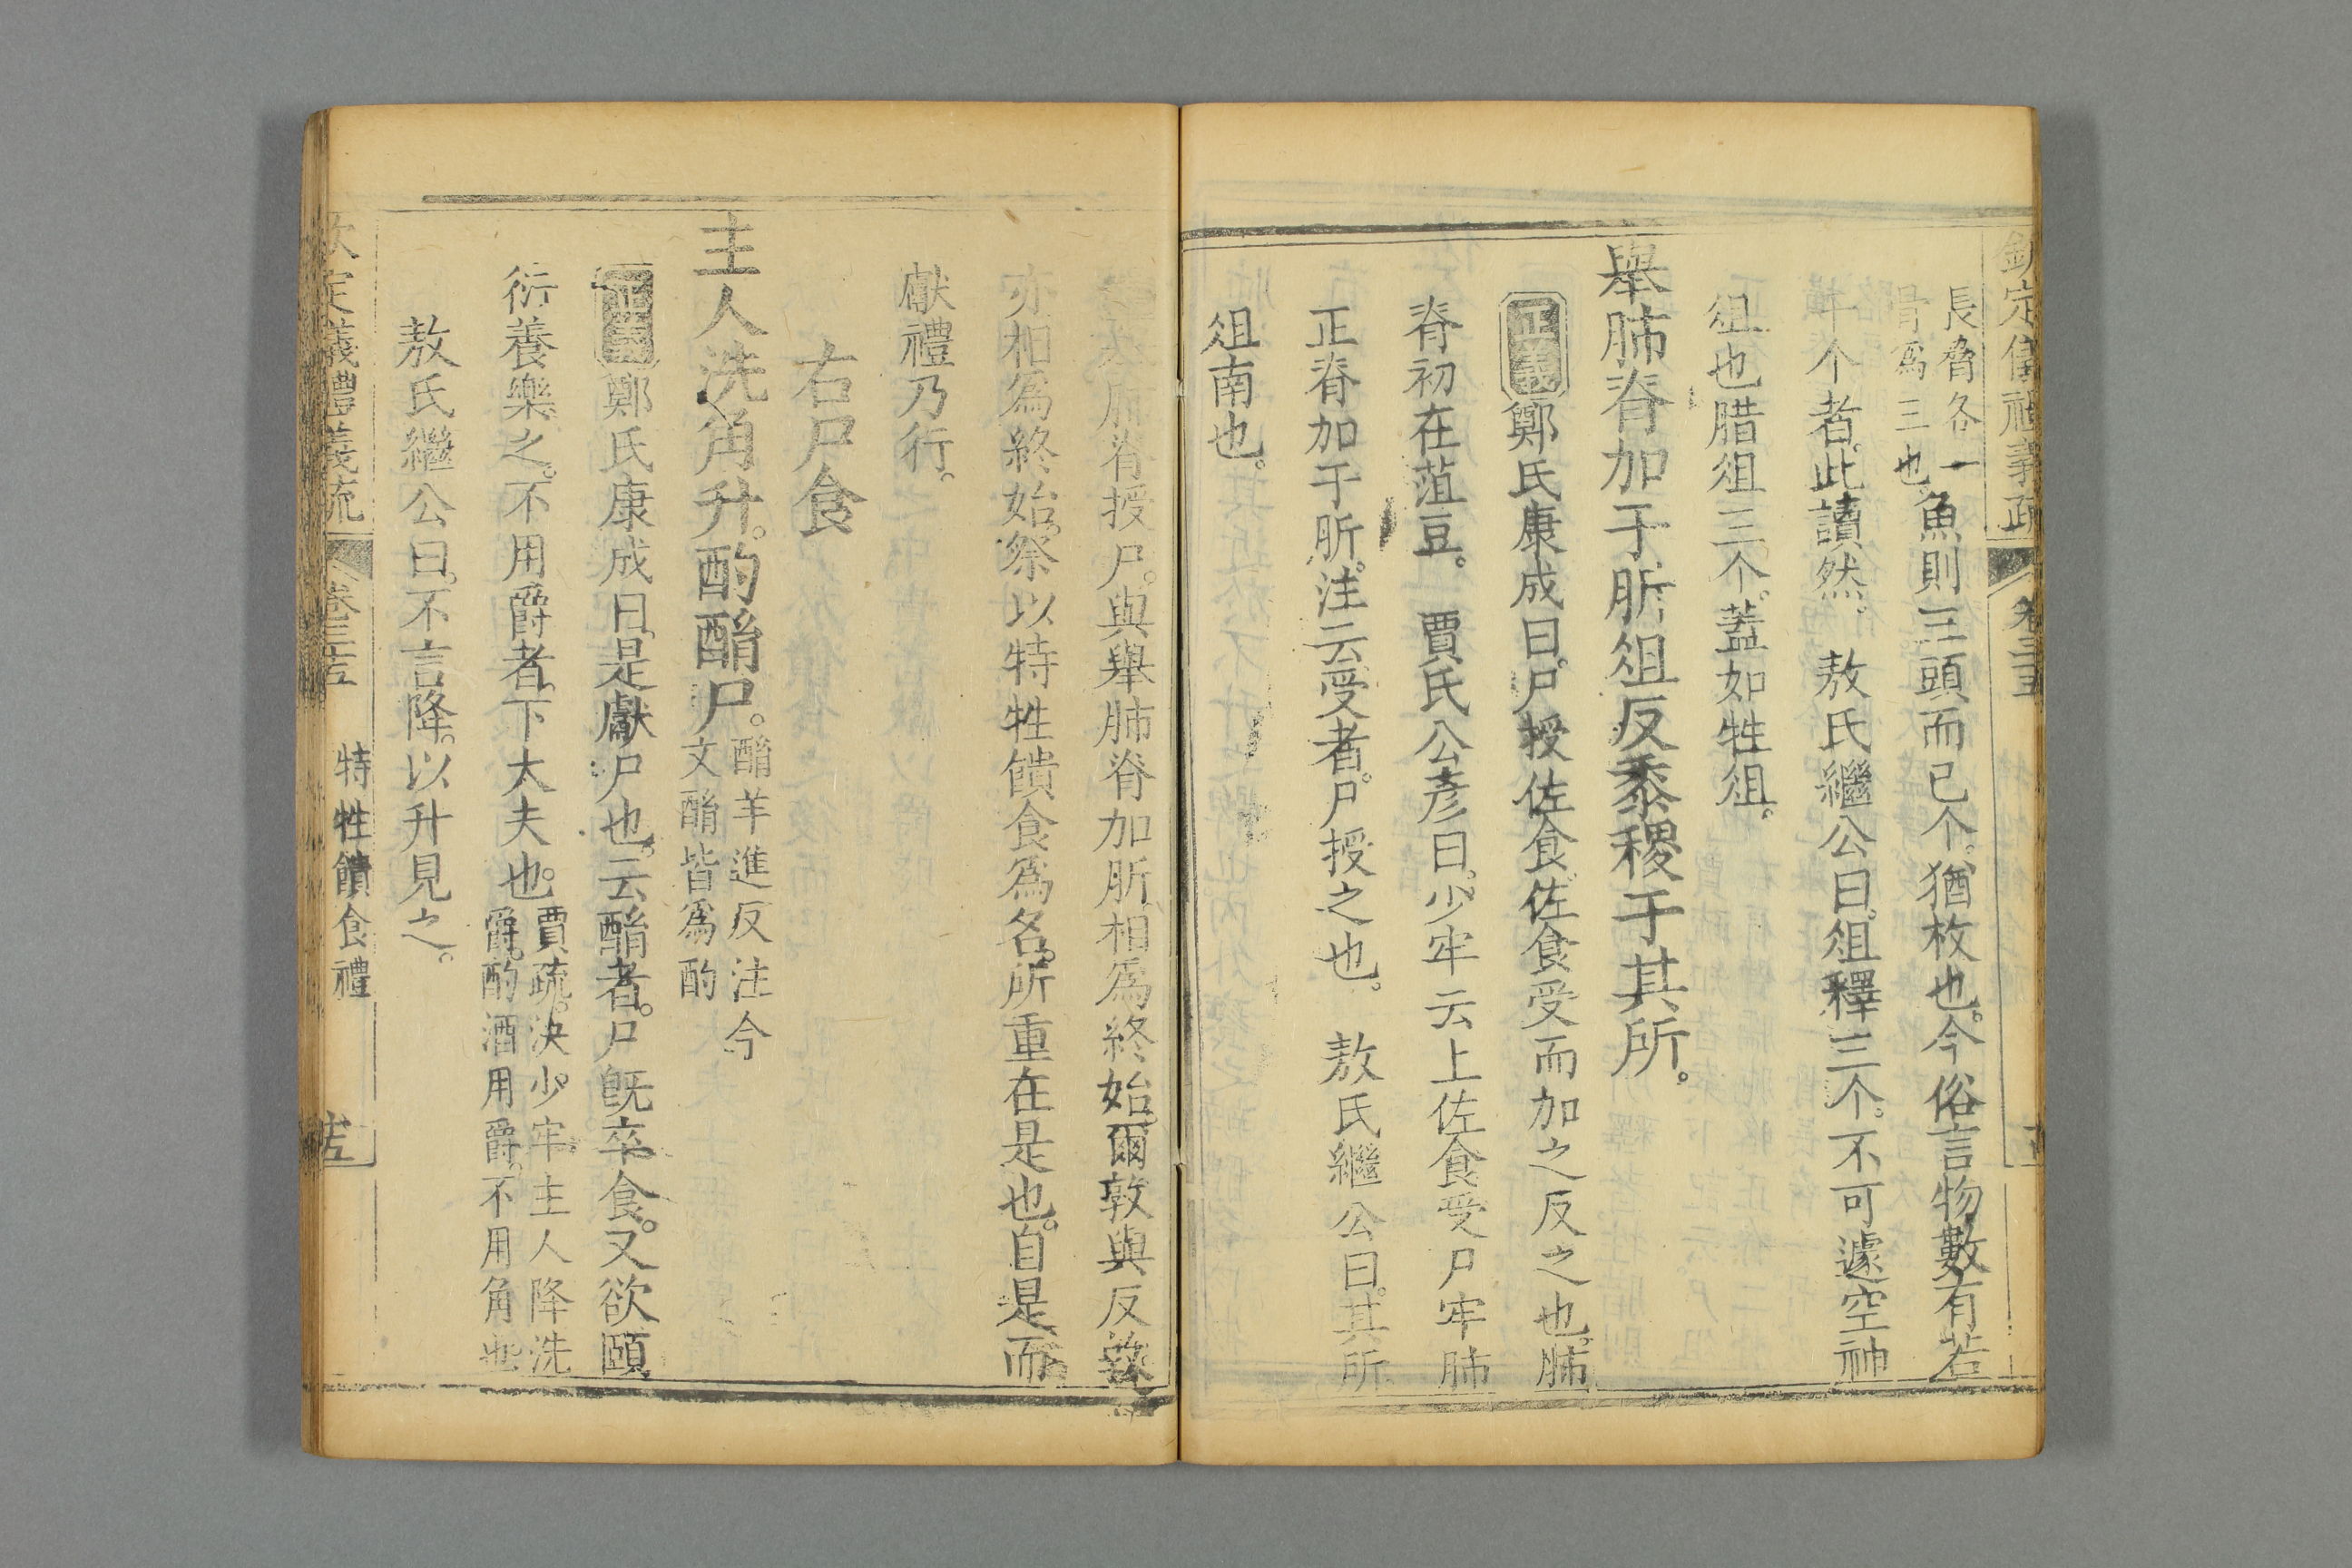 欽定儀禮義疏 卷三十五
長脅各一骨為三也魚則三頭而已个猶枚也今俗言物數有若
干个者此讀然 敖氏繼公曰俎釋三个不可遽空神
俎也腊俎三个蓋如牲俎
舉肺脊加于肵俎反黍稷于其所
正義鄭氏康成曰尸授佐食佐食受而加之反之也肺
脊初在菹豆 賈氏公彥曰少牢云上佐食受尸牢肺
正脊加于肵注云受者尸授之也 敖氏繼公曰其所
俎南也
肺脊授尸與舉肺脊加肵相為終始爾敦與反黍
亦相為終始祭以特牲饋食為名所重在是也自是而
獻禮乃行
右尸食
主人洗角升酌酳尸
酳羊進反注今
文酳皆為酌
正義鄭氏康成曰是獻尸也云酳者尸既卒食又欲頤
衍養樂之不用爵者下大夫也
賈疏決少牢主人降洗
爵酌酒用爵不用角也
敖氏繼公曰不言降以升見之
欽定儀禮義疏 卷三十五 特牲饋食禮